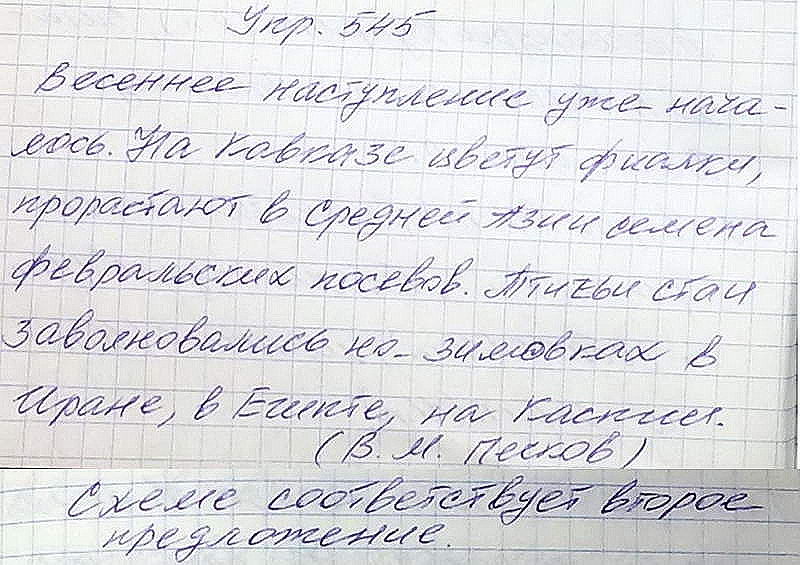 Упр. 545
Весеннее наступление уже нача-
лось. На Кавказе цветут фиалки,
прорастают в Средней Азии семена
февральских посевов. Птичьи стаи
заволновались на зимовках в
Иране, в Египте, на Каспии.
(В. М. Песков)
Схеме соответствует второе
предложение.